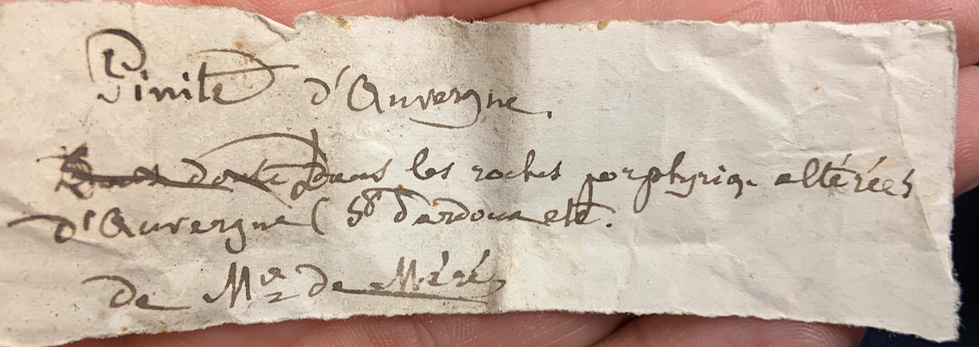 Pinite d'Auvergne.
Sans doute Dans les roches porphyriq. altérées
d'Auvergne (St Pardoux etc.
de Mr de Méré,